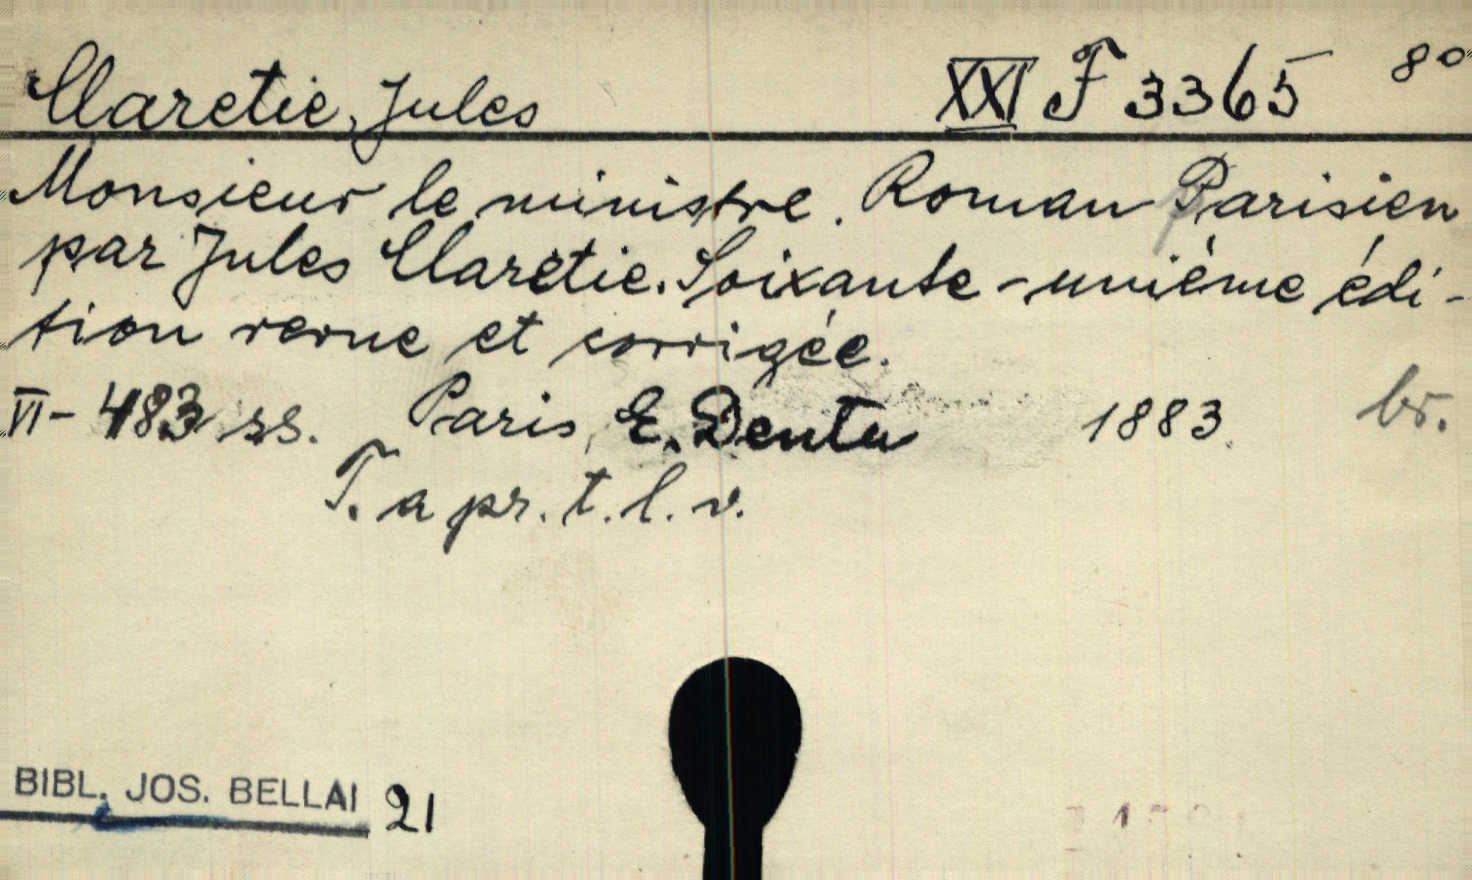 Claretie, Jules XXI F 3365 8°
Monsieur le ministre. Roman Parisien
par Jules Claretie. Soixante-unième édi-
tion revue et corrigée.
VI-483 ss. Paris, E. Dentu 1883. br.
T. a pr. t. l. v.
BIBL. JOS. BELLAI 21